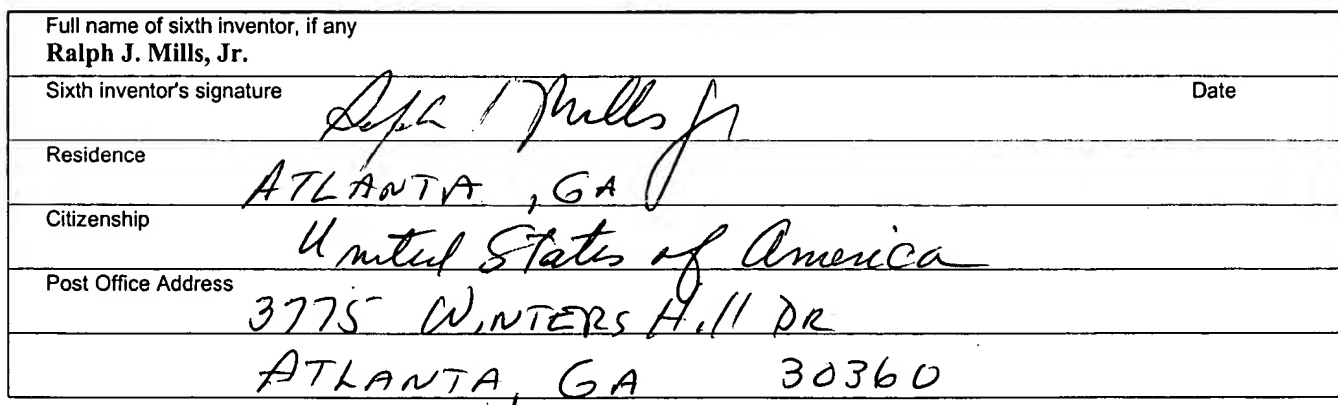 Full name of sixth inventor, if any
Ralph J. Mills, Jr.
Sixth inventor's signature Ralph J Mills Jr Date
Residence
ATLANTA, GA
Citizenship
United States of America
Post Office Address
3775 WINTERS Hill DR
ATLANTA, GA 30360